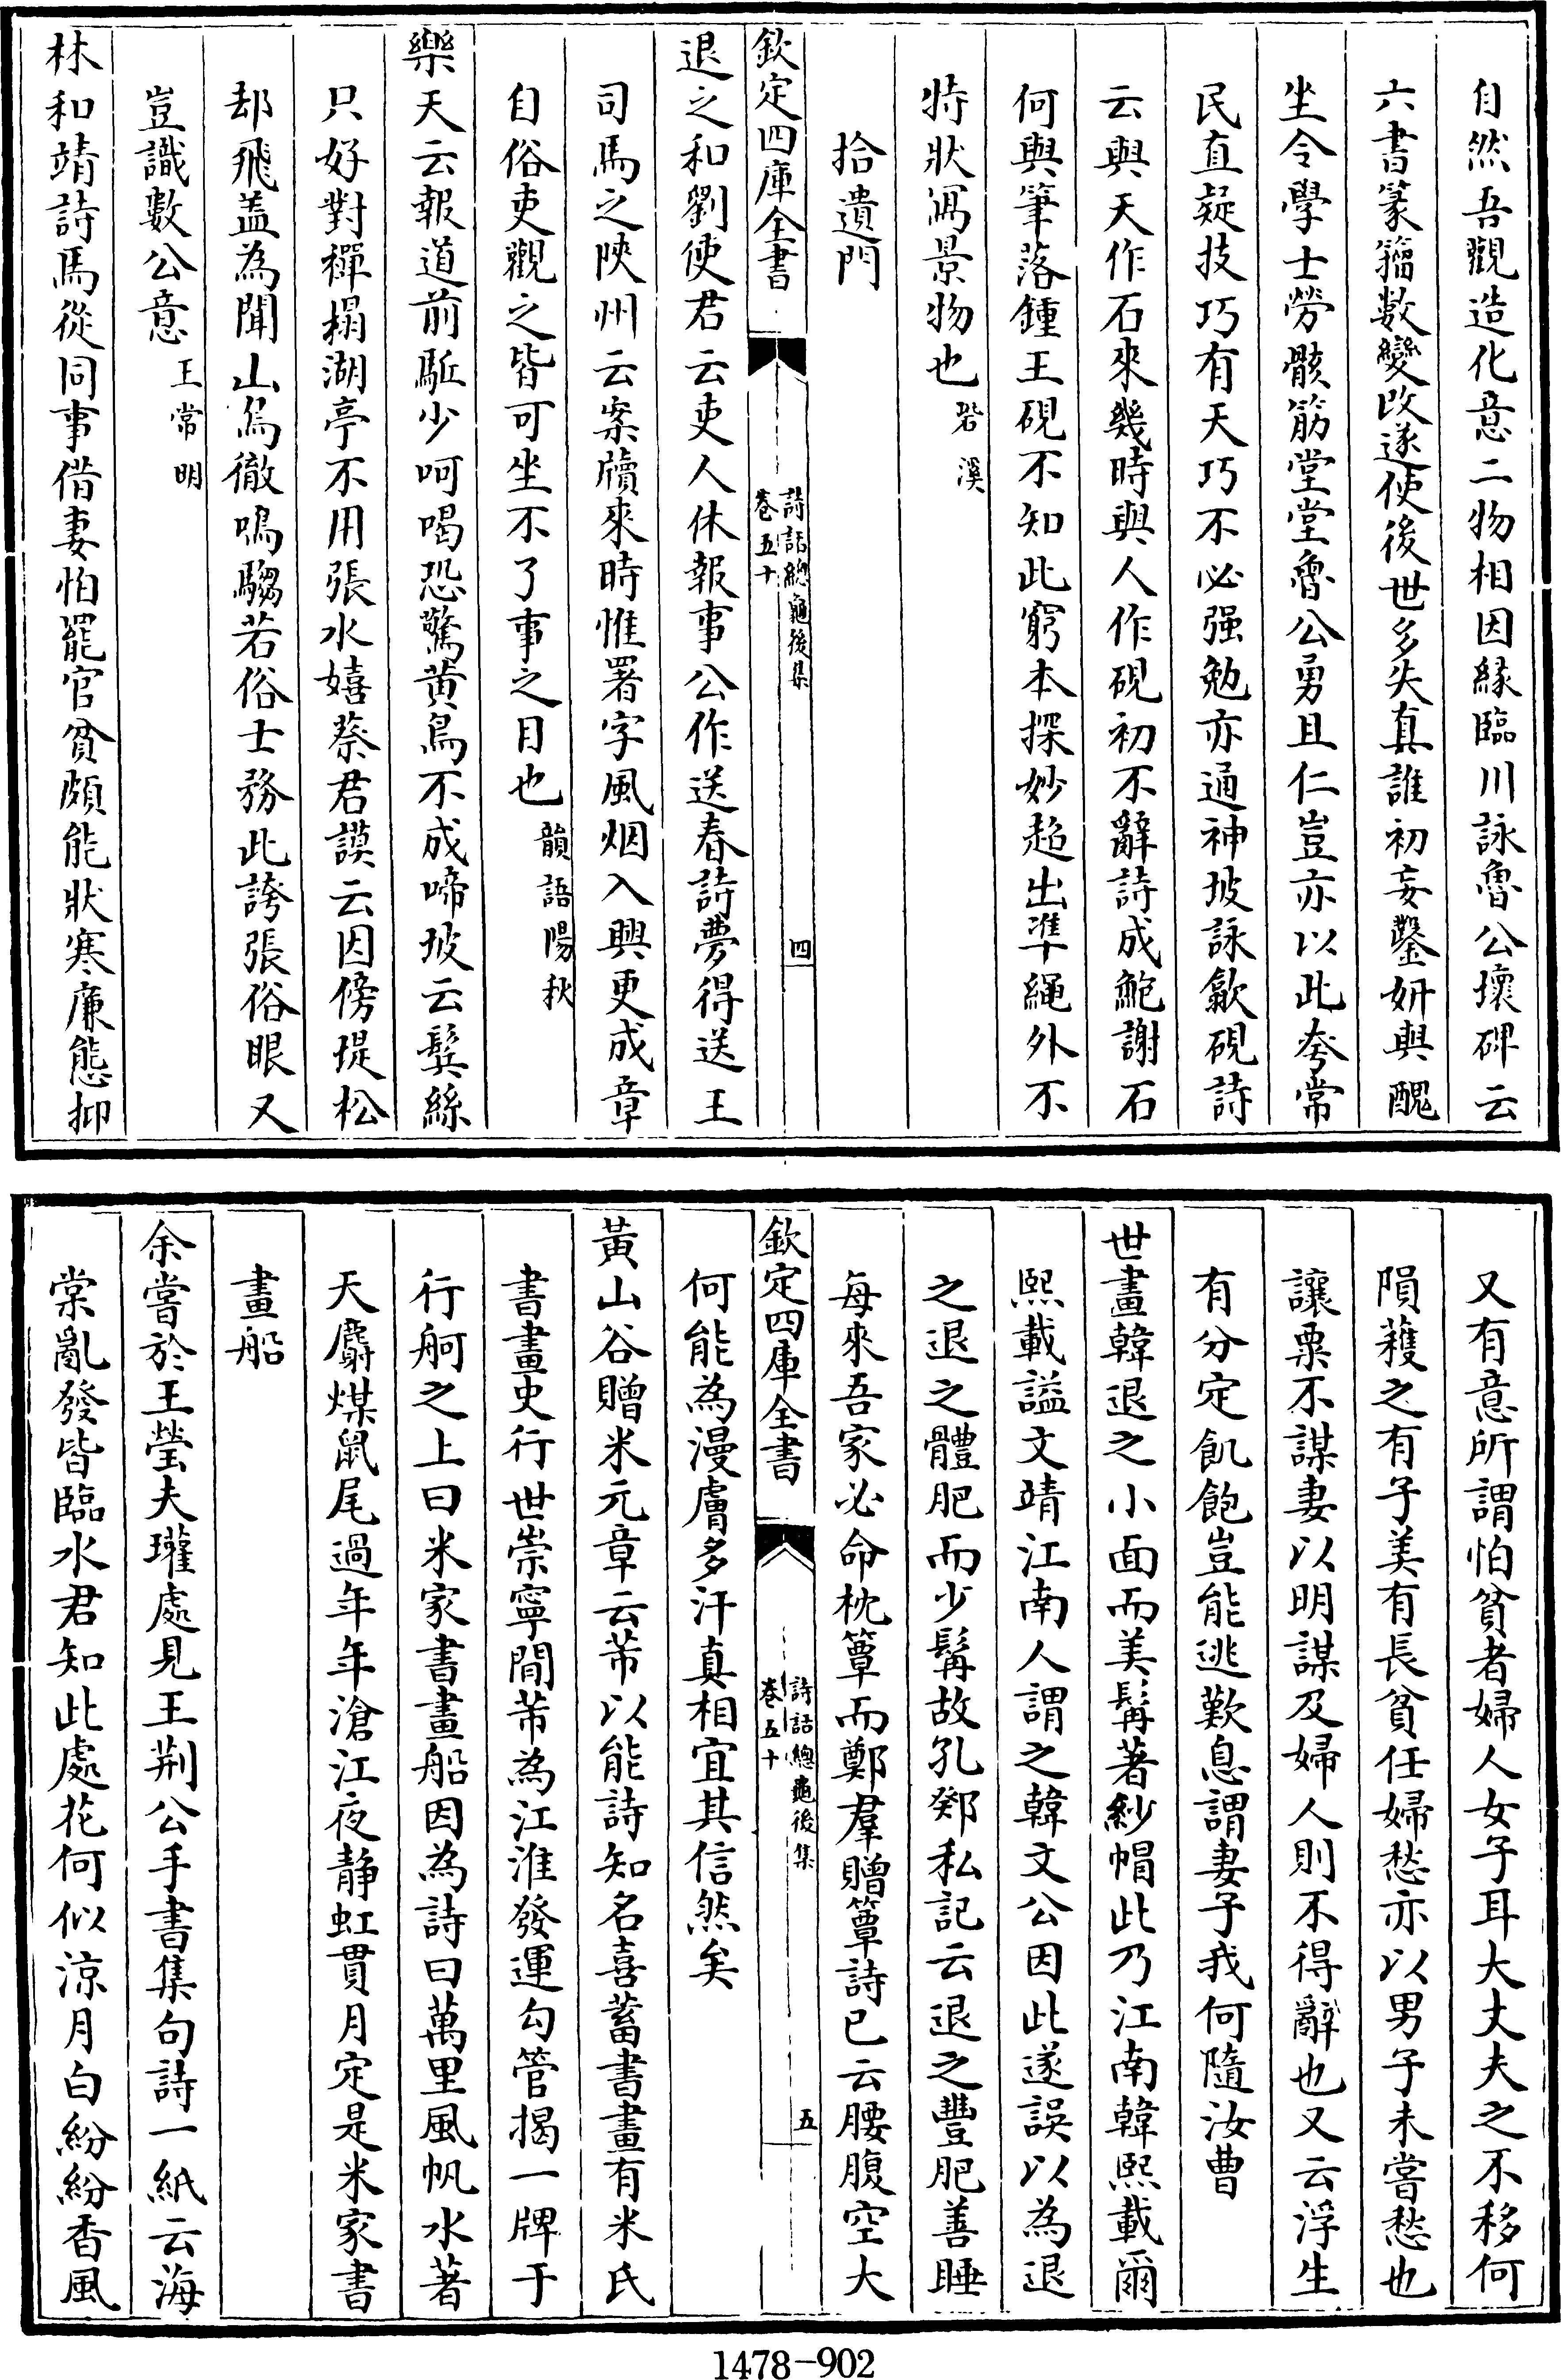 自然吾觀造化意二物相因緣臨川詠魯公壞碑云
六書篆籀數變改遂使後世多失真誰初妄鑿妍與醜
坐令學士勞骸筋堂堂魯公勇且仁豈亦以此夸常
民直疑技巧有天巧不必强勉亦通神坡詠歙硯詩
云與天作石來幾時與人作硯初不辭詩成鮑謝石
何與筆落鍾王硯不知此窮本探妙超出準繩外不
特狀冩景物也 碧溪
拾遺門
欽定四庫全書
詩話總龜後集
卷五十
四
退之和劉使君云吏人休報事公作送春詩夢得送王
司馬之陜州云案牘來時惟署字風烟入興更成章
自俗吏觀之皆可坐不了事之目也 韻語陽秋
樂天云報道前駈少呵喝恐驚黄鳥不成啼坡云鬓絲
只好對禪榻湖亭不用張水嬉蔡君謨云因傍堤松
却飛蓋為聞山鳥徹鳴騶若俗士務此誇張俗眼又
豈識數公意 王常明
林和靖詩馬從同事借妻怕罷官貧頗能狀寒廉態抑
又有意所謂怕貧者婦人女子耳大丈夫之不移何
隕穫之有子美有長貧任婦愁亦以男子未嘗愁也
讓粟不謀妻以明謀及婦人則不得辭也又云浮生
有分定飢飽豈能逃歎息謂妻子我何隨汝曹
世畫韓退之小面而美髯著紗帽此乃江南韓熙載爾
熙載謚文靖江南人謂之韓文公因此遂誤以為退
之退之體肥而少髯故孔郯私記云退之豐肥善睡
每來吾家必命枕簟而鄭羣贈簟詩已云腰腹空大
欽定四庫全書
詩話總龜後集
卷五十
五
何能為漫膚多汗真相宜其信然矣
黃山谷贈米元章云芾以能詩知名喜蓄書畫有米氏
書畫史行世崇寧間芾為江淮發運勾管揭一牌于
行舸之上曰米家書畫船因為詩曰萬里風帆水著
天麝煤鼠尾過年年滄江夜静虹貫月定是米家書
畫船
余嘗於王瑩夫瓘處見王荆公手書集句詩一紙云海
棠亂發皆臨水君知此處花何似涼月白紛紛香風
1478-902